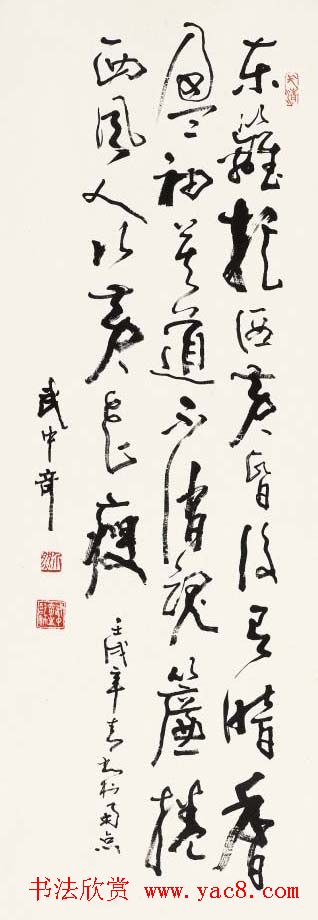 東籬把酒黄昏後有暗香
盈袖莫道不消魂簾捲
西風人比黄花瘦
壬戌年春书於
武中奇
书法欣赏 www.yac8.com